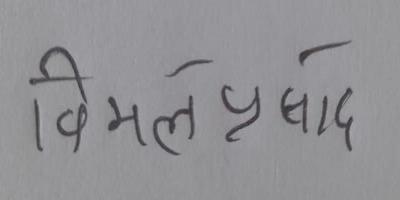 विमल प्रसाद